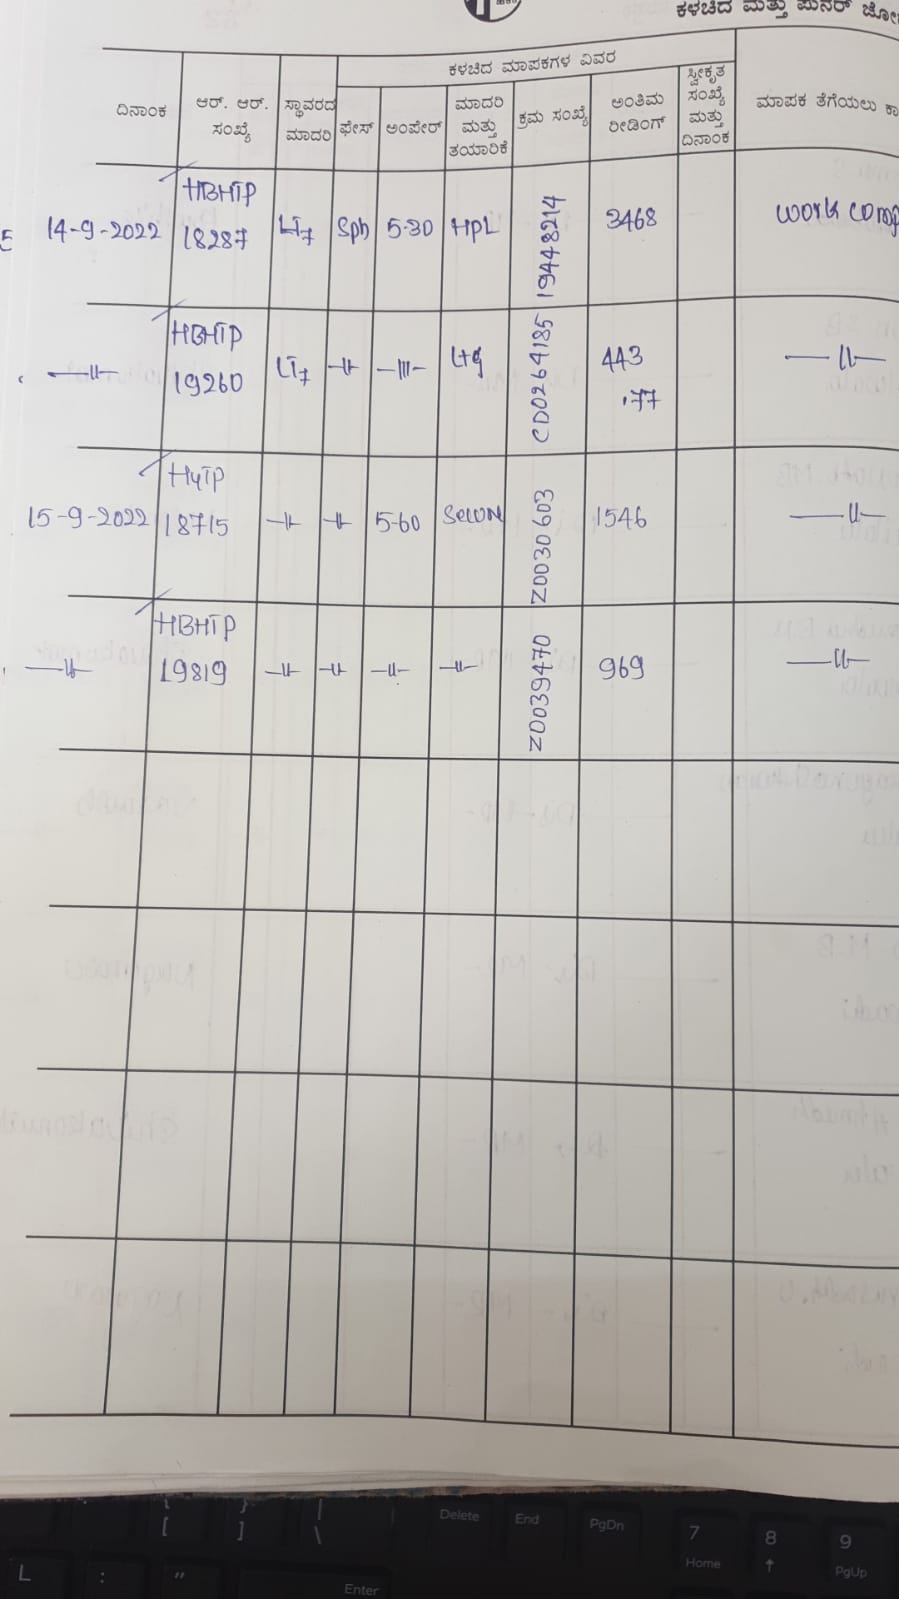 ಕಳಚಿದ ಮತ್ತು ಪುನರ್
ಕಳಚಿದ ಮಾಪಕಗಳ ವಿವರ
ದಿನಾಂಕ
ಆರ್. ಆರ್.
ಸಂಖ್ಯೆ
ಸ್ಥಾವರದ
ಮಾದರಿ
ಫೇಸ್
ಅಂಪೇರ್
ಮಾದರಿ
ಮತ್ತು
ತಯಾರಿಕೆ
ಕ್ರಮ ಸಂಖ್ಯೆ
ಅಂತಿಮ
ರೀಡಿಂಗ್
ಸ್ವೀಕೃತ
ಸಂಖ್ಯೆ
ಮತ್ತು
ದಿನಾಂಕ
ಮಾಪಕ ತೆಗೆಯಲು
14-9-2022 HBHTP 18287 LT7 Sph 5-30 HPL 19448214 3468 work comp
-॥- HBHTP 19260 LT7 -॥- -॥- L+G CD0264185 443 .77 -॥-
15-9-2022 HYTP 18715 -॥- -॥- 5-60 Z0030603 1546 -॥-
-॥- HBHTP 19819 -॥- -॥- -॥- -॥- Z0039470 969 -॥-
Delete End PgDn 7 Home 8 9 PgUp
[ ] \
L : " Enter